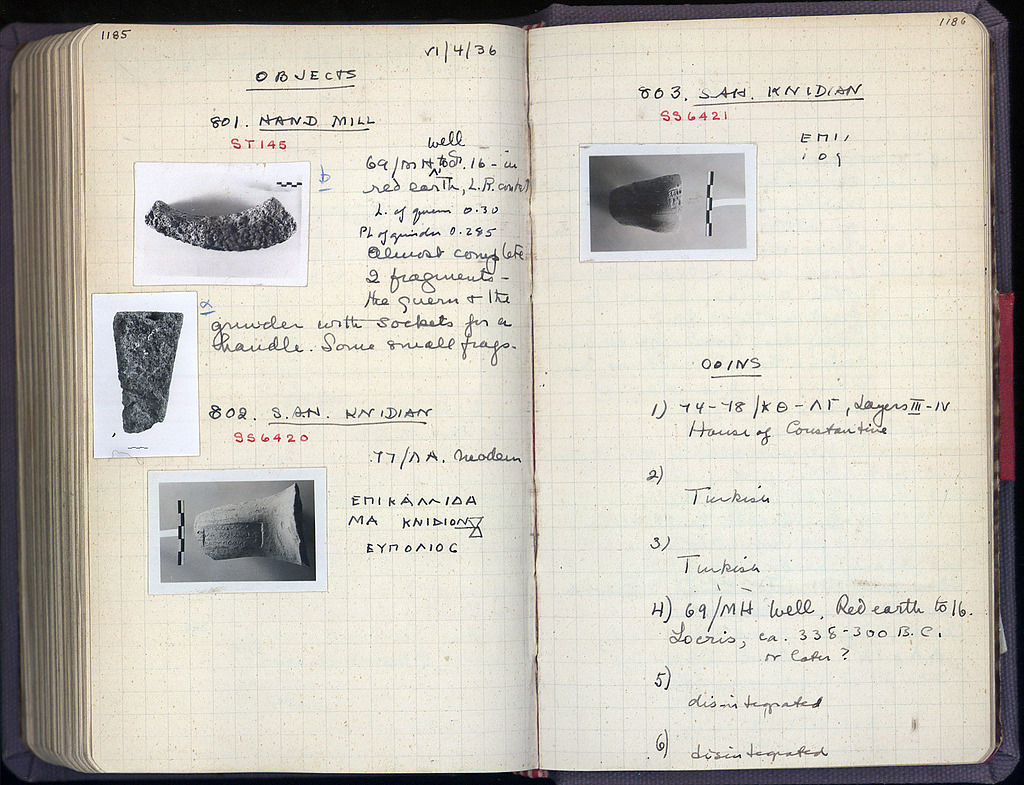 1185
VI/4/36
OBJECTS
801. HAND MILL
ST145
well
69/ΜΗ to 16 - in
red earth, L.R. context
L. of quern 0.30
PL of grinder 0.285
Almost complete
2 fragments -
the quern & the
grinder with sockets for a
handle. Some small frags.
b
a
802. S.A.H. KNIDIAN
SS6420
77/ΛΑ. Modern
ΕΠΙΚΑΛΛΙΔΑ
ΜΑ ΚΝΙΔΙΟΝ
ΕΥΠΟΛΙΟC
1186
803. S.A.H. KNIDIAN
SS6421
ΕΠΙ
COINS
1) 74-78/ΚΘ-ΛΓ, Layers III-IV
House of Constantine
2)
Turkish
3)
Turkish
4) 69/ΜΗ Well, Red earth to 16.
Locris, ca. 338-300 B.C.
or later?
5)
disintegrated
6) disintegrated